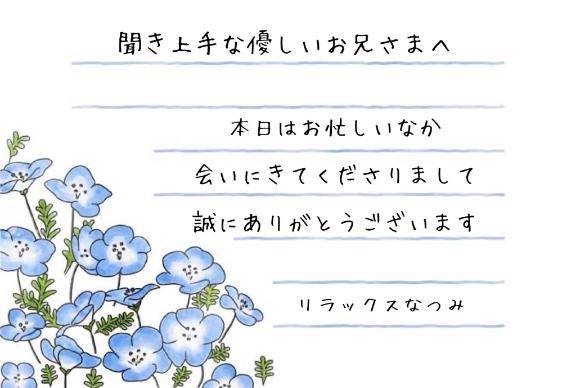 聞き上手な優しいお兄さまへ
本日はお忙しいなか
会いにきてくださりまして
誠にありがとうございます
リラックスなつみ